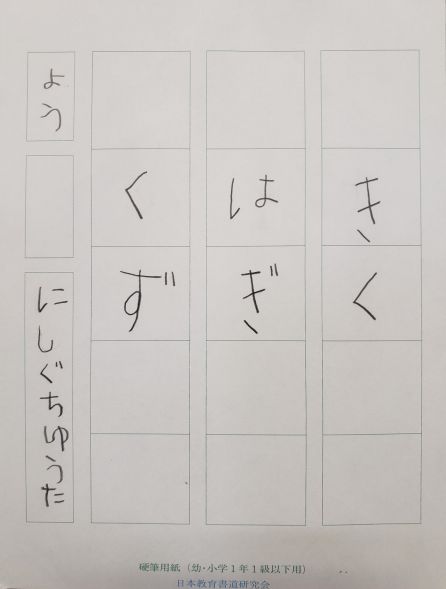 きく
はぎ
くず
よう
にしぐちゆうた
硬筆用紙（幼・小学1年1級以下用）
日本教育書道研究会